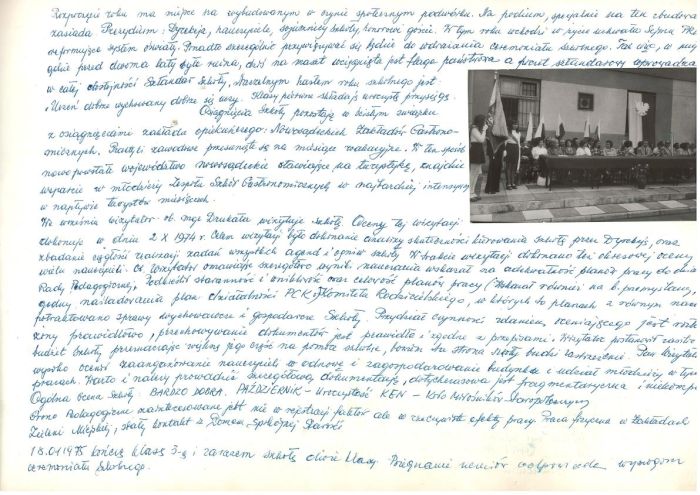 Rozpoczęcie roku ma miejsce na wybudowanym w czynie społecznym podwórku. Na podium, specjalnie na ten cel zbudowanym
zasiada Prezydium: Dyrekcja, nauczyciele, sojusznicy szkoły, honorowi goście. W tym roku wchodzi w życie uchwała Sejmu PRL
system oświaty. Ponadto szczególnie przywiązywać się będzie do odradzania ceremoniału szkolnego. Tak więc, o ile
przed dwoma laty była nuda, dziś na maszt wciągnięta jest flaga państwowa a poczet sztandarowy wprowadza
w całej obstojności Sztandar Szkoły. Naczelnym hasłem roku szkolnego jest
"Uczeń dobrze wychowany dobrze się uczy". Klasy pierwsze składają uroczyste przysięgi.
Osiągnięcia Szkoły pozostają w ścisłym związku
z osiągnięciami zakładu opiekuńczego: Nowosądeckich Zakładów Gastrono-
micznych. Praktyki zawodowe przesunęto na miesiące wakacyjne. W ten sposób
nowopowstałe województwo nowosądeckie stawiające na turystykę, znajduje
wsparcie w młodzieży Zespołu Szkół Gastronomicznych w najbardziej intensywnym
w napływie turystów miesiącach.
We wrześniu wizytator ob. mgr Drukała wizytuje szkołę. Oceny tej wizytacji
dokonuje w dniu 2 X 1974 r. Celem wizytacji było dokonanie analizy skuteczności kierowania szkołą przez Dyrekcję, oraz
zbadanie ciągłości realizacji zadań wszystkich agend i ogniw szkoły. W trakcie wizytacji dokonano też okresowej oceny
wielu nauczycieli. Ob. Wizytator omawiając szczegółowo wyniki nauczania wskazał na adekwatność planów pracy do
Rady Pedagogicznej. Podkreślił staranność i ambitność oraz celowość planów pracy (wskazał również na b. pomysłowy,
godny naśladowania plan działalności PCK i Komitetu Rodzicielskiego, w których to planach z równym
potraktowano sprawy wychowawcze i gospodarcze Szkoły. Przydział czynności zdaniem oceniającego jest
żony prawidłowo, przechowywanie dokumentów jest prawidłowe i zgodne z przepisami. Wizytator postanowił zasilić
budżet Szkoły przeznaczając większą jego część na pomoce szkolne, bowiem ta strona szkoły budzi zastrzeżenie. Pan Wizytator
wysoko ocenił zaangażowanie nauczycieli w odnowę i zagospodarowanie budynku i udział młodzieży w tych
pracach. Warto i należy prowadzić szczegółową dokumentację, dotychczasowa jest fragmentaryczna i
Ogólna ocena Szkoły: BARDZO DOBRA. PAŹDZIERNIK - Uroczystość KEN - Koło Miłośników
Grono Pedagogiczne zainteresowane jest nie w rejestracji faktów ale w rzeczywiste efekty pracy. Praca fizyczna w Zakładach
Zieleni Miejskiej, stały kontakt z Domem Spokojnej Starości
18.01.1975 kończy klasa 3-g i zarazem szkołę dwie klasy. Pożegnanie uczniów odpowiada wymogom
ceremoniału szkolnego.